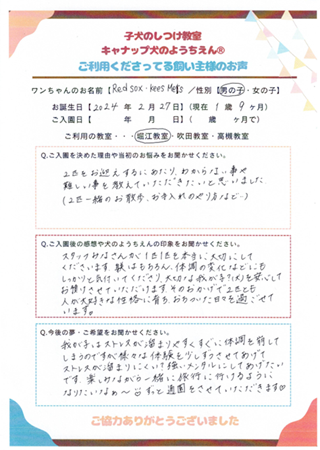 子犬のしつけ教室
キャナップ犬のようちえん®
ご利用くださってる飼い主様のお声
ワンちゃんのお名前【Red sox・Kees Mets】／性別【男の子・女の子】
お誕生日【2024年 2月 27日】(現在 1歳 9ヶ月)
ご入園日【 年 月 日】( 歳 ヶ月で)
ご利用の教室・・・堀江教室・吹田教室・高槻教室
Q.ご入園を決めた理由や当初のお悩みをお聞かせください。
2匹をお迎えするにあたり、わからない事や
難しい事を教えていただきたいと思いました
(2匹一緒のお散歩、お手入れのやり方など…)
Q.ご入園後の感想や犬のようちえんの印象をお聞かせください。
スタッフみなさんが1匹1匹を本当に大切にして
くださいます。躾はもちろん、体調の変化などにも
しっかりと気付いてくださり、大切な我が子(犬)を安心して
お預けさせていただけます。そのおかげで2匹とも
人が大好きな性格に育ち、おちついた日々を過ごせて
います。
Q.今後の夢・ご希望をお聞かせください。
我が子はストレスが溜まりやすくすぐに体調を崩して
しまうのですが様々な体験を少しずつさせてあげて
ストレスが溜まりにくい？強いメンタルにしてあげたい
です。楽しみながら一緒に旅行に行けるように
なりたいなぁ〜 ずっと通園をさせていただきます♡
ご協力ありがとうございました